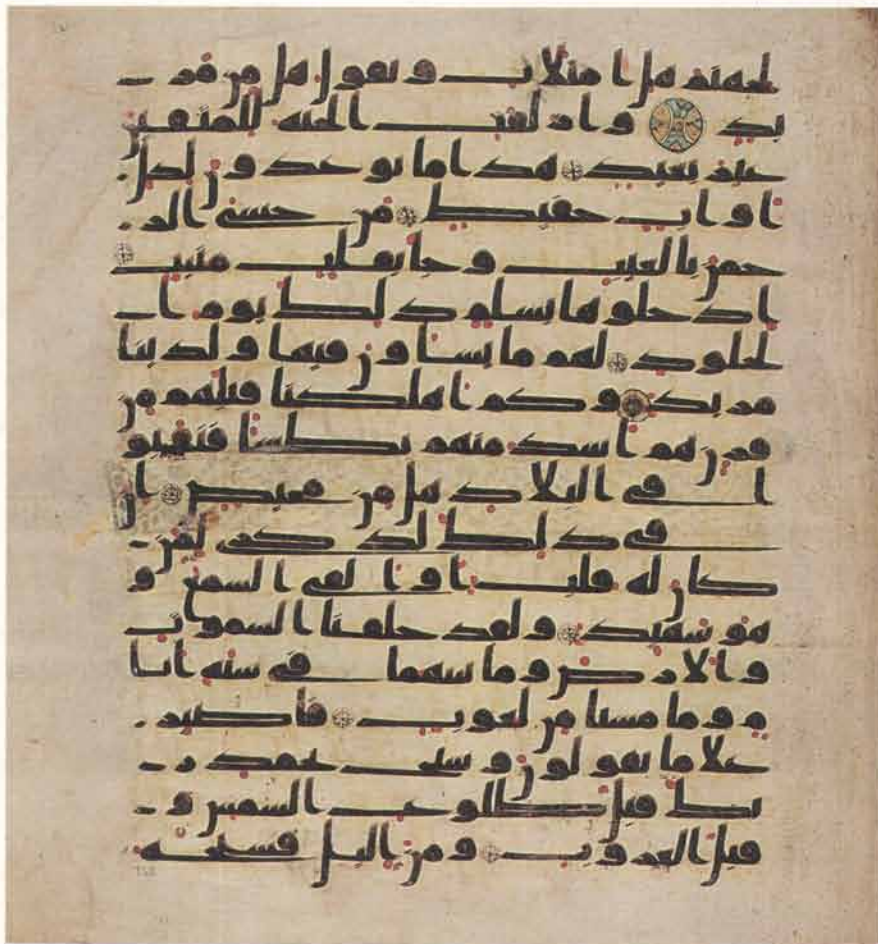 لجهنم هل امتلات وتقول هل من مز
يد وازلفت الجنة للمتقين
غير بعيد هذا ما توعدون لكل
اواب حفيظ من خشي الر
حمن بالغيب وجا بقلب منيب
ادخلوها بسلم ذلك يوم ا
لخلود لهم ما يشاون فيها ولدينا
مزيد وكم اهلكنا قبلهم من
قرن هم اشد منهم بطشا فنقبو
ا في البلاد هل من محيص ان
في ذلك لذكرى لمن
كان له قلب او القى السمع و
هو شهيد ولقد خلقنا السموت
والارض وما بينهما في ستة ايا
م وما مسنا من لغوب فاصبر
على ما يقولون وسبح بحمد ر
بك قبل طلوع الشمس و
قبل الغروب ومن اليل فسبحه